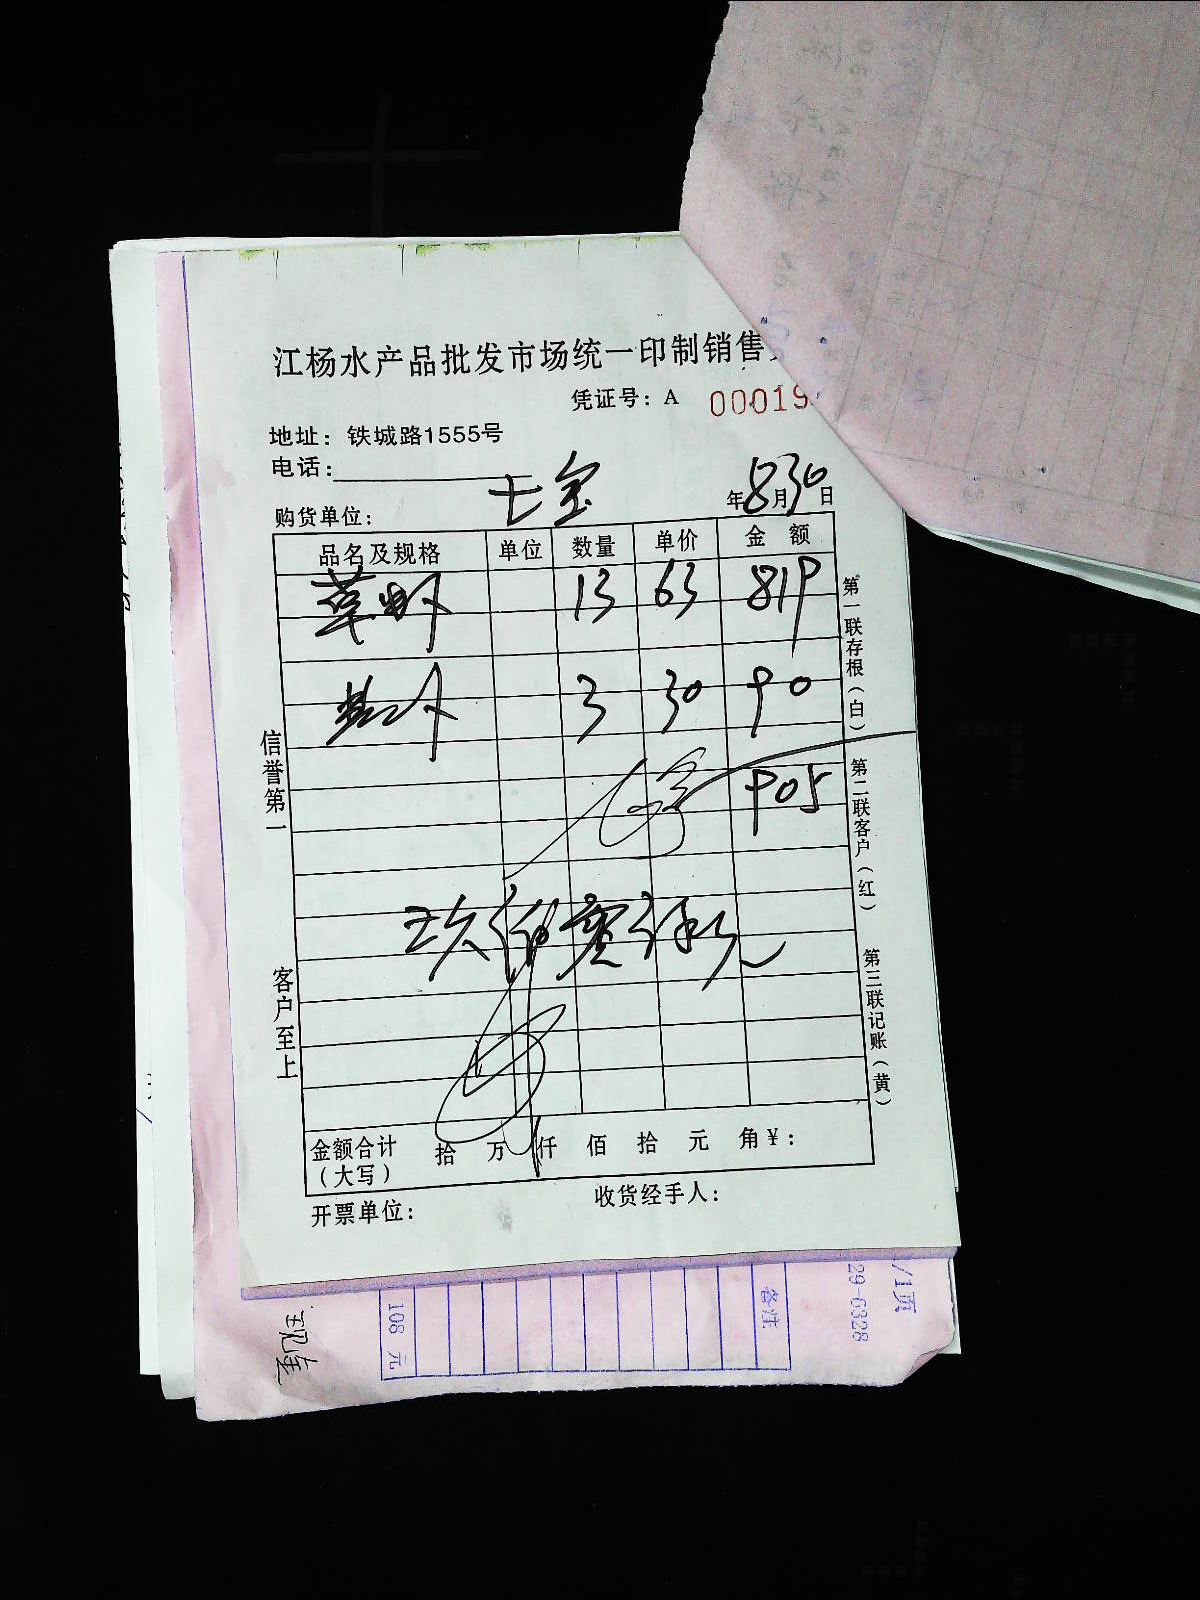 江杨水产品批发市场统一印制销售
凭证号：A 00019
地址：铁城路1555号
电话：
购货单位： 七宝 年8月30日
品名及规格 单位 数量 单价 金额
草虾 13 63 819
3 30 90
905
玖佰零伍元
金额合计（大写） 拾 万 仟 佰 拾 元 角￥：
开票单位： 收货经手人：
信誉第一
客户至上
第一联存根（白）
第二联客户（红）
第三联记账（黄）
108 元
备注
29-6328
/1页
现金